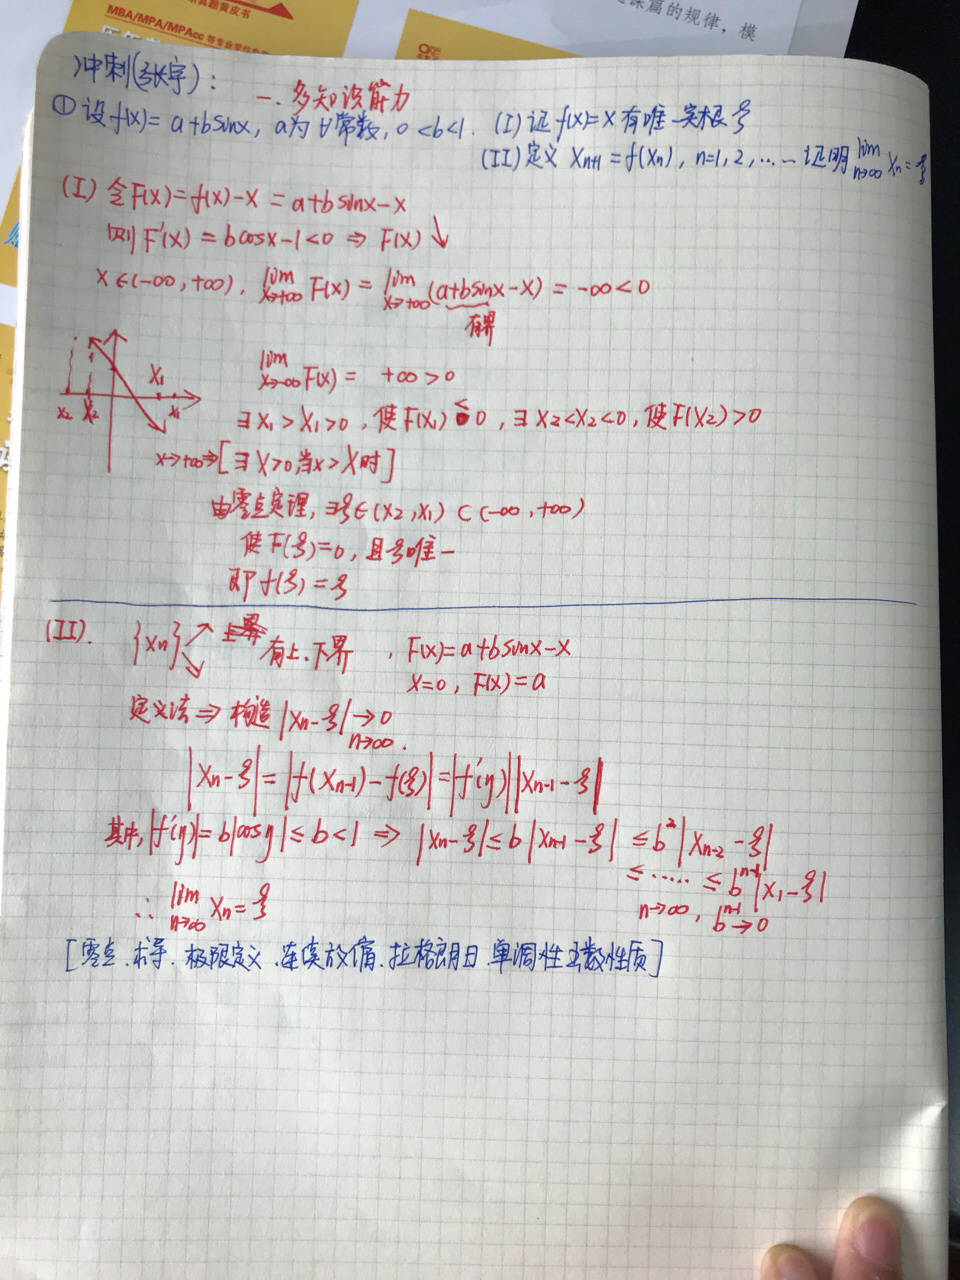 真题黄皮书
MBA/MPA/MPAcc 等专业学位
课篇的规律，模
冲刺(张宇)：
一. 多知识能力
① 设f(x)=a+bsinx, a为∀常数, 0<b<1. (I) 证 f(x)=x 有唯一实根ξ
(II) 定义 Xn+1=f(Xn), n=1,2,… 证明 lim n→∞ Xn=ξ
(I) 令F(x)=f(x)-x=a+bsinx-x
则F'(x)=bcosx-1<0 ⇒ F(x)↓
x∈(-∞,+∞), lim x→+∞ F(x)= lim x→+∞ (a+bsinx-x)=-∞<0
有界
lim x→-∞ F(x)= +∞>0
x2 X2 X1 x1
∃x1>X1>0, 使F(x1)<0, ∃x2<X2<0, 使F(x2)>0
x→+∞⇒[∃X>0,当x>X时]
由零点定理, ∃ξ∈(x2,x1)⊂(-∞,+∞)
使F(ξ)=0, 且ξ唯一
即f(ξ)=ξ
(II). {Xn} 有上、下界, F(x)=a+bsinx-x
x=0, F(x)=a
定义法⇒构造|Xn-ξ|→0 n→∞.
|Xn-ξ|=|f(Xn-1)-f(ξ)|=|f'(η)||Xn-1-ξ|
其中,|f'(η)|=b|cosη|≤b<1 ⇒ |Xn-ξ|≤b|Xn-1-ξ| ≤b²|Xn-2-ξ|
≤…… ≤b^{n-1}|X1-ξ|
n→∞, b^{n-1}→0
∴ lim n→∞ Xn=ξ
[零点、求导、极限定义、连续放缩、拉格朗日、单调性函数性质]